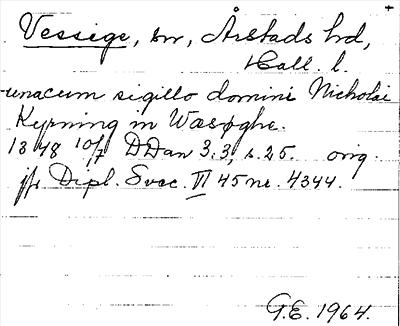 Vessige, sn, Årstads hd,
Hall. l.
unacum sigillo domini Nicholai
Kyrning in Wæsøghe.
1348 10/7 DDan 3:3, s. 25. orig.
jfr Dipl. Svec. VI 45 nr. 4344.
G.E. 1964.